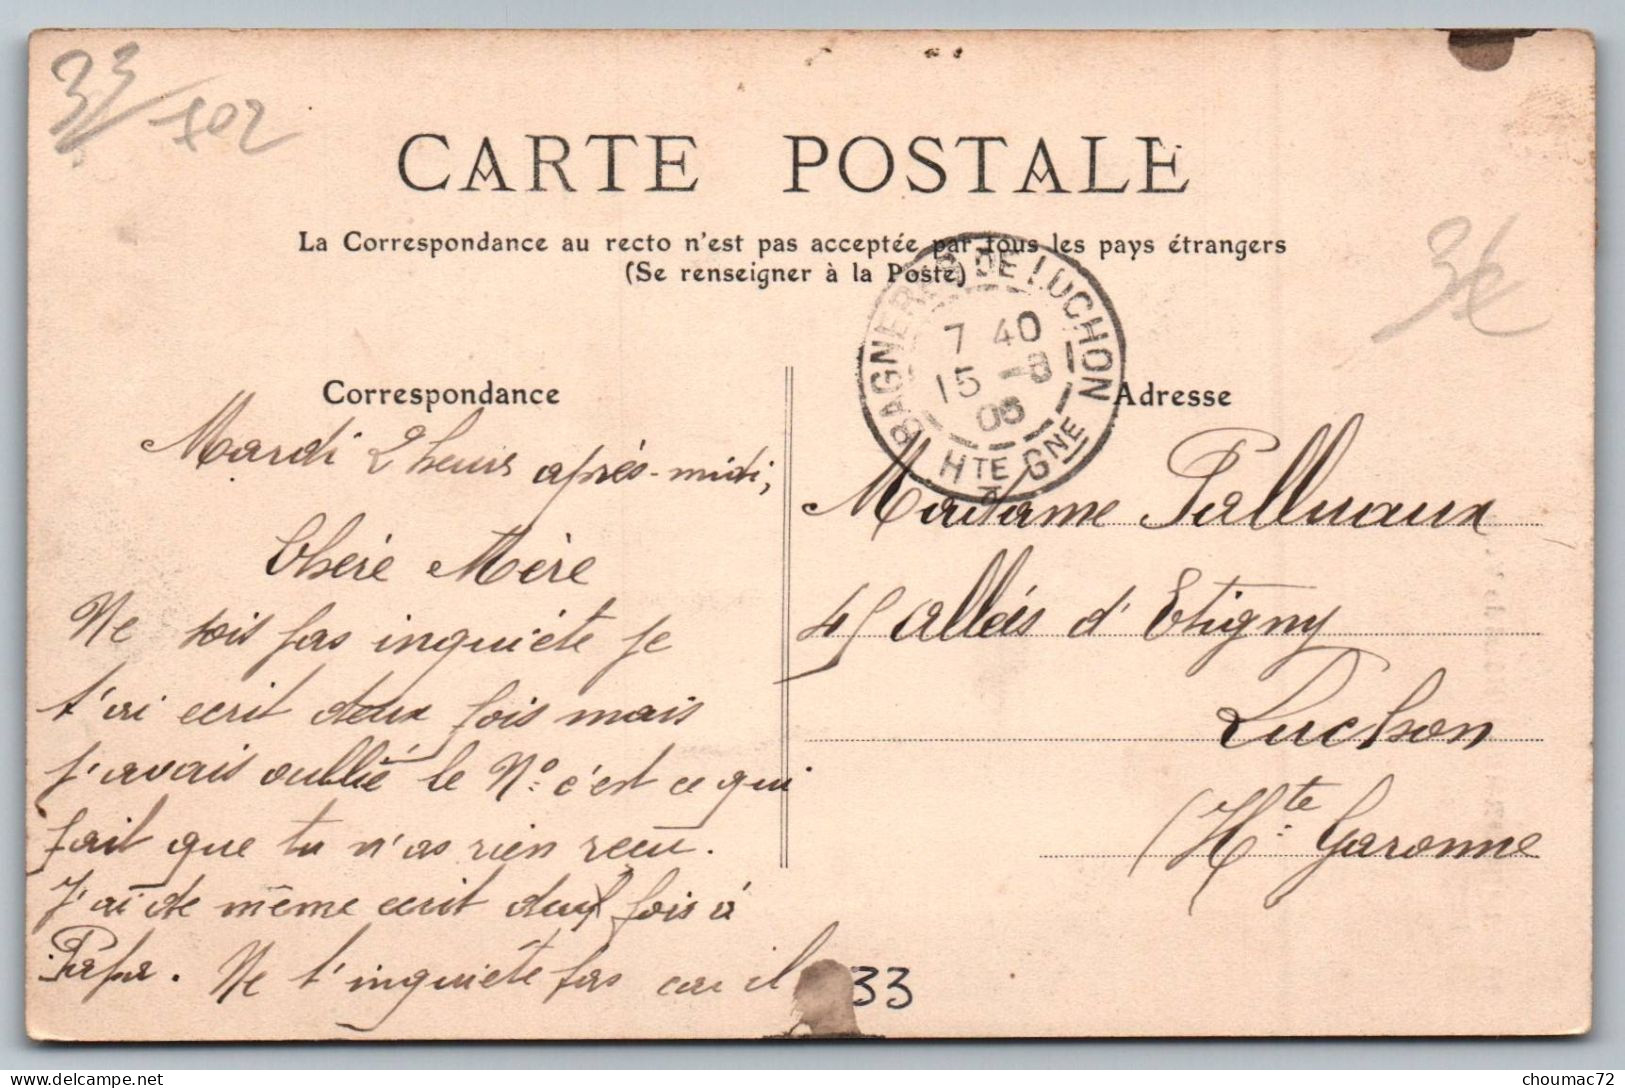 33
402
CARTE POSTALE
La Correspondance au recto n'est pas acceptée par tous les pays étrangers
(Se renseigner à la Poste)
3€
BAGNERES DE LUCHON
7 40
15 -8
06
HTE GNE
Correspondance
Mardi 2 heures après-midi,
Chère Mère
Ne sois pas inquiète je
t'ai ecrit deux fois mais
j'avais oublié le No. c'est ce qui
fait que tu n'as rien recu.
J'ai de même ecrit deux fois à
Papa. Ne t'inquiète pas car il
33
Adresse
Madame
45 allées d'Etigny
Luchon
(Hte Garonne
choumac72